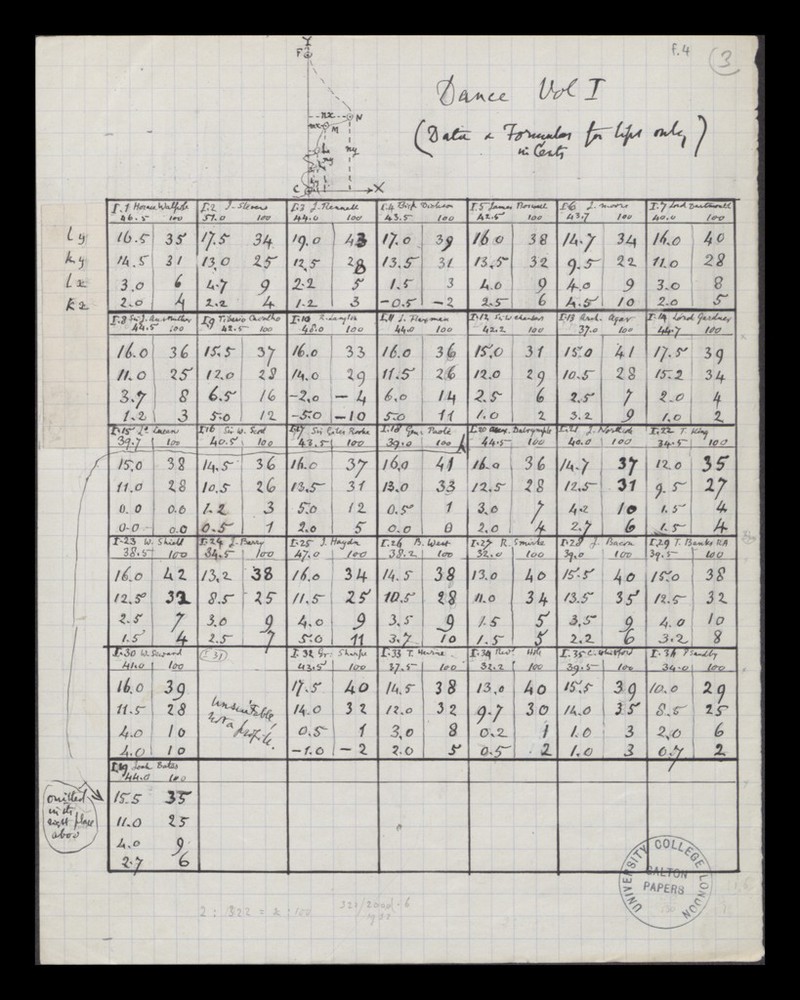 f.4
3
Dance Vol I
(Data & Formulas for lips only)
in Cents
Y
F
nx N
mx M
ny
C X
I.1 Horace Walpole I.2 J. Stevens I.3 J. Rennell I.4 I.5 James Boswell I.6 J. Moore I.7 Lord Dartmouth
46.5 100 51.0 100 44.0 100 43.5 100 42.5 100 43.7 100 40.0 100
ly 16.5 35 17.5 34 19.0 43 17.0 39 16.0 38 14.7 34 16.0 40
ky 14.5 31 13.0 25 12.5 28 13.5 31 13.5 32 9.5 22 11.0 28
lx 3.0 6 4.7 9 2.2 5 1.5 3 4.0 9 4.0 9 3.0 8
kx 2.0 4 2.2 4 1.2 3 -0.5 -2 2.5 6 4.5 10 2.0 5
I.8 I.9 I.10 R. Langton I.11 J. Flaxman I.12 I.13 Arch. Agar I.14 Lord Gardner
44.5 100 42.5 100 48.0 100 44.0 100 42.2 100 37.0 100 44.7 100
16.0 36 15.5 37 16.0 33 16.0 36 15.0 31 15.0 41 17.5 39
11.0 25 12.0 28 14.0 29 11.5 26 12.0 29 10.5 28 15.2 34
3.7 8 6.5 16 -2.0 -4 6.0 14 2.5 6 2.5 7 2.0 4
1.2 3 5.0 12 -5.0 -10 5.0 11 1.0 2 3.2 9 1.0 2
I.15 I.16 Sir W. I.17 Sir Giles Rooke I.18 Gen. Paoli I.20 Alex. Dalrymple I.21 J. Northcote I.22 T. King
39.7 100 40.5 100 43.5 100 39.0 100 44.5 100 40.0 100 34.5 100
15.0 38 14.5 36 16.0 37 16.0 41 16.0 36 14.7 37 12.0 35
11.0 28 10.5 26 13.5 31 13.0 33 12.5 28 12.5 31 9.5 27
0.0 0.0 1.2 3 5.0 12 0.5 1 3.0 7 4.2 10 1.5 4
0.0 0.0 0.5 1 2.0 5 0.0 0 2.0 4 2.7 6 1.5 4
I.23 W. Shield I.24 J. Barry I.25 J. Haydn I.26 B. West I.27 R. Smirke I.28 J. Bacon I.29 T. Banks RA
38.5 100 34.5 100 47.0 100 38.2 100 32.0 100 39.0 100 39.5 100
16.0 42 13.2 38 16.0 34 14.5 38 13.0 40 15.5 40 15.0 38
12.5 32 8.5 25 11.5 25 10.5 28 11.0 34 13.5 35 12.5 32
2.5 7 3.0 9 4.0 9 3.5 9 1.5 5 3.5 9 4.0 10
1.5 4 2.5 7 5.0 11 3.7 10 1.5 5 2.2 6 3.2 8
I.30 W. Seward I 31 I.32 Gr. Sharpe I.33 T. Hearne I.34 Revd. Hole I.35 C. I.36 P Sandby
41.0 100 43.5 100 37.5 100 32.2 100 39.5 100 34.0 100
16.0 39 17.5 40 14.5 38 13.0 40 15.5 39 10.0 29
11.5 28 unsuitable, 14.0 32 12.0 32 9.7 30 14.0 35 8.5 25
4.0 10 not a profile. 0.5 1 3.0 8 0.2 1 1.0 3 2.0 6
4.0 10 -1.0 -2 2.0 5 0.5 2 1.0 3 0.7 2
I.19 Joah Bates
44.0 100
omitted 15.5 35
in its
right place 11.0 25
above 4.0 9
2.7 6
UNIVERSITY COLLEGE LONDON
GALTON
PAPERS
2 : 322 = x : 100